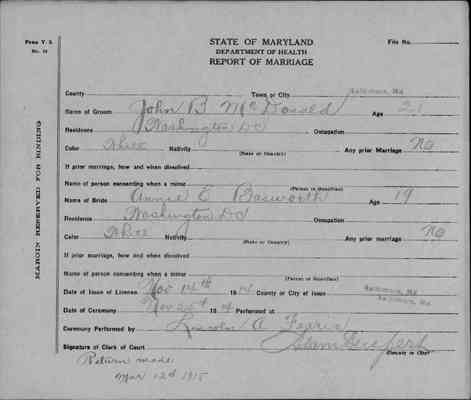 Form V. S.
No. 19
STATE OF MARYLAND
DEPARTMENT OF HEALTH
REPORT OF MARRIAGE
File No.
County Town or City Baltimore, Md
Name of Groom John B McDonald Age 21
Residence Washington DC Occupation
Color White Nativity (State or Country) Any prior Marriage No
If prior marriage, how and when dissolved
Name of person consenting when a minor (Parent or Guardian)
Name of Bride Annie E Basworth Age 19
Residence Washington DC Occupation
Color White Nativity (State or Country) Any prior marriage No
If prior marriage, how and when dissolved
Name of person consenting when a minor (Parent or Guardian)
Date of Issue of License Nov 14th 1914 County or City of Issue Baltimore, Md
Date of Ceremony Nov 1914 Performed at Baltimore, Md
Ceremony Performed by Lincoln A
Signature of Clerk of Court
Return made
Mar 12th 1915
MARGIN RESERVED FOR BINDING